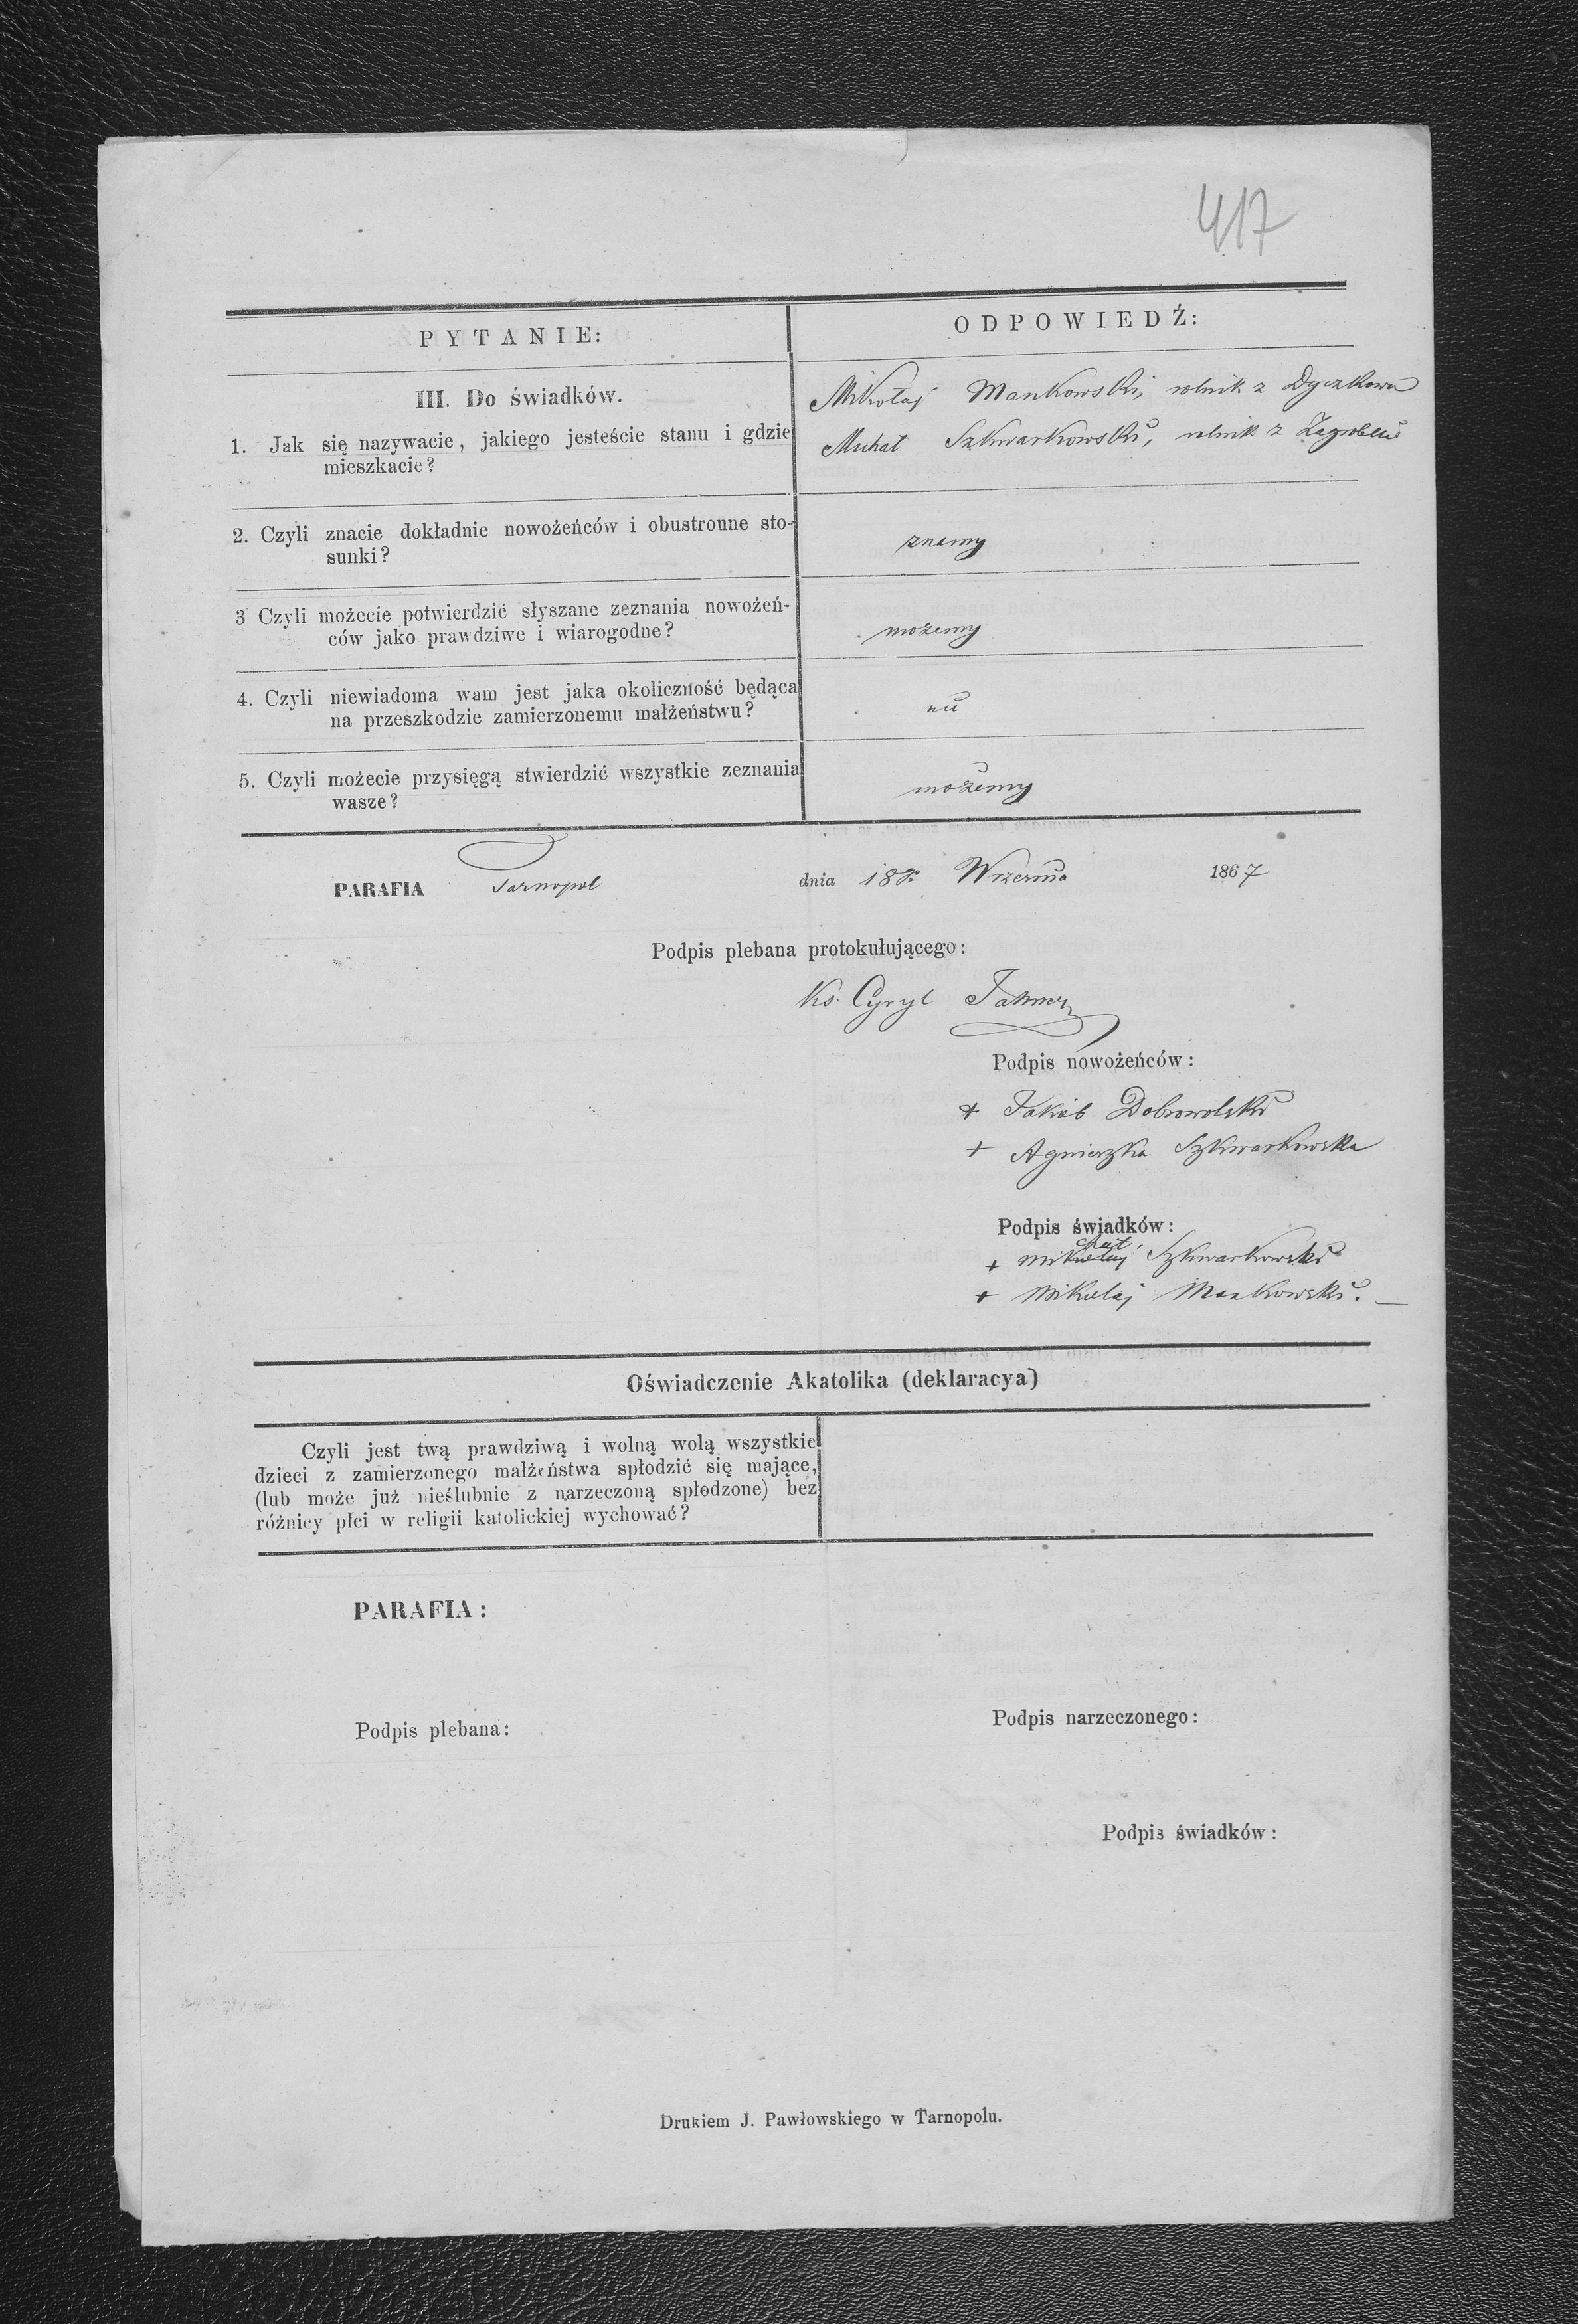 417
PYTANIE:
ODPOWIEDŹ:
III. Do świadków.
1. Jak się nazywacie, jakiego jesteście stanu i gdzie
mieszkacie?
Mikołaj Mankowski, rolnik z Dyczkowa
Michał Szkwarkowski, rolnik z Zagrobeli
2. Czyli znacie dokładnie nowożeńców i obustronne sto-
sunki?
znamy
3 Czyli możecie potwierdzić słyszane zeznania nowożeń-
ców jako prawdziwe i wiarogodne?
możemy
4. Czyli niewiadoma wam jest jaka okoliczność będąca
na przeszkodzie zamierzonemu małżeństwu?
nie
5. Czyli możecie przysięgą stwierdzić wszystkie zeznania
wasze?
możemy
PARAFIA Tarnopol dnia 18go Września 1867
Podpis plebana protokułującego:
Ks. Cyryl
Podpis nowożeńców:
+ Jakób Dobrowolski
+ Agnieszka Szkwarkowska
Podpis świadków:
chał
+ Mikołaj Szkwarkowski
+ Mikołaj Mankowski. —
Oświadczenie Akatolika (deklaracya)
Czyli jest twą prawdziwą i wolną wolą wszystkie
dzieci z zamierzonego małżeństwa spłodzić się mające,
(lub może już nieślubnie z narzeczoną spłodzone) bez
różnicy płci w religii katolickiej wychować?
PARAFIA:
Podpis plebana:
Podpis narzeczonego:
Podpis świadków:
Drukiem J. Pawłowskiego w Tarnopolu.